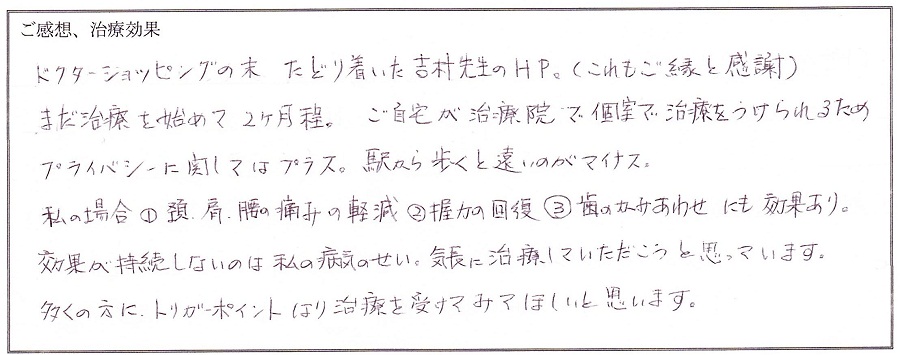 ご感想、治療効果
ドクターショッピングの末 たどり着いた吉村先生のHP。(これもご縁と感謝)
まだ治療を始めて2ヶ月程。 ご自宅が治療院で個室で治療をうけられるため
プライバシーに関してはプラス。駅から歩くと遠いのがマイナス。
私の場合①頚.肩.腰の痛みの軽減②握力の回復③歯のかみあわせにも効果あり。
効果が持続しないのは私の病気のせい。気長に治療していただこうと思っています。
多くの方に、トリガーポイントはり治療を受けてみてほしいと思います。